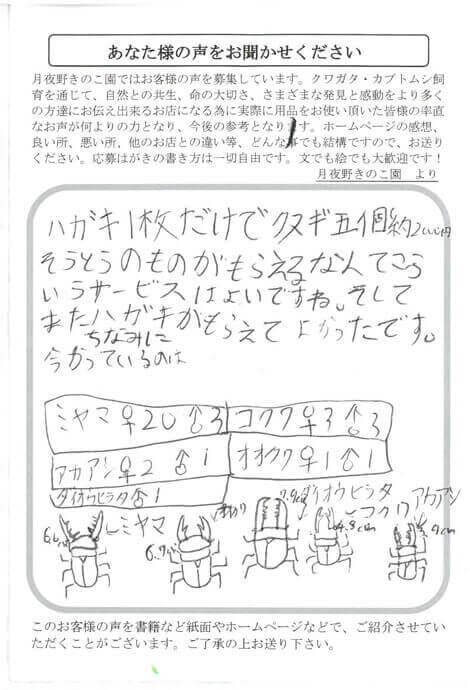 あなた様の声をお聞かせください
月夜野きのこ園ではお客様の声を募集しています。クワガタ・カブトムシ飼
育を通じて、自然との共生、命の大切さ、さまざまな発見と感動をより多く
の方達にお伝え出来るお店になる為に実際に用品をお使い頂いた皆様の率直
なお声が何よりの力となり、今後の参考となります。ホームページの感想、
良い所、悪い所、他のお店との違い等、どんな事でも結構ですので、お送り
ください。応募はがきの書き方は一切自由です。文でも絵でも大歓迎です！
月夜野きのこ園 より
ハガキ1枚だけでクヌギ五個約2000円
そうとうのものがもらえるなんてこう
いうサービスはよいですね。そして
またハガキがもらえてよかったです。
ちなみに
今かっているのは
ミヤマ♀20♂3 コクワ♀3♂3
アカアシ♀2♂1 オオクワ♀1♂1
ダイオウヒラタ♂1
7.9cm ダイオウヒラタ
コクワ アカアシ
ミヤマ
4.8cm
このお客様の声を書籍など紙面やホームページなどで、ご紹介させてい
ただくことがございます。ご了承の上お送り下さい。